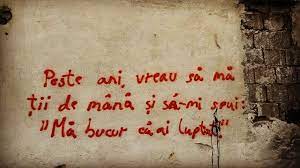 Peste ani, vreau să mă
ții de mână și să-mi spui:
"Mă bucur că ai luptat!"